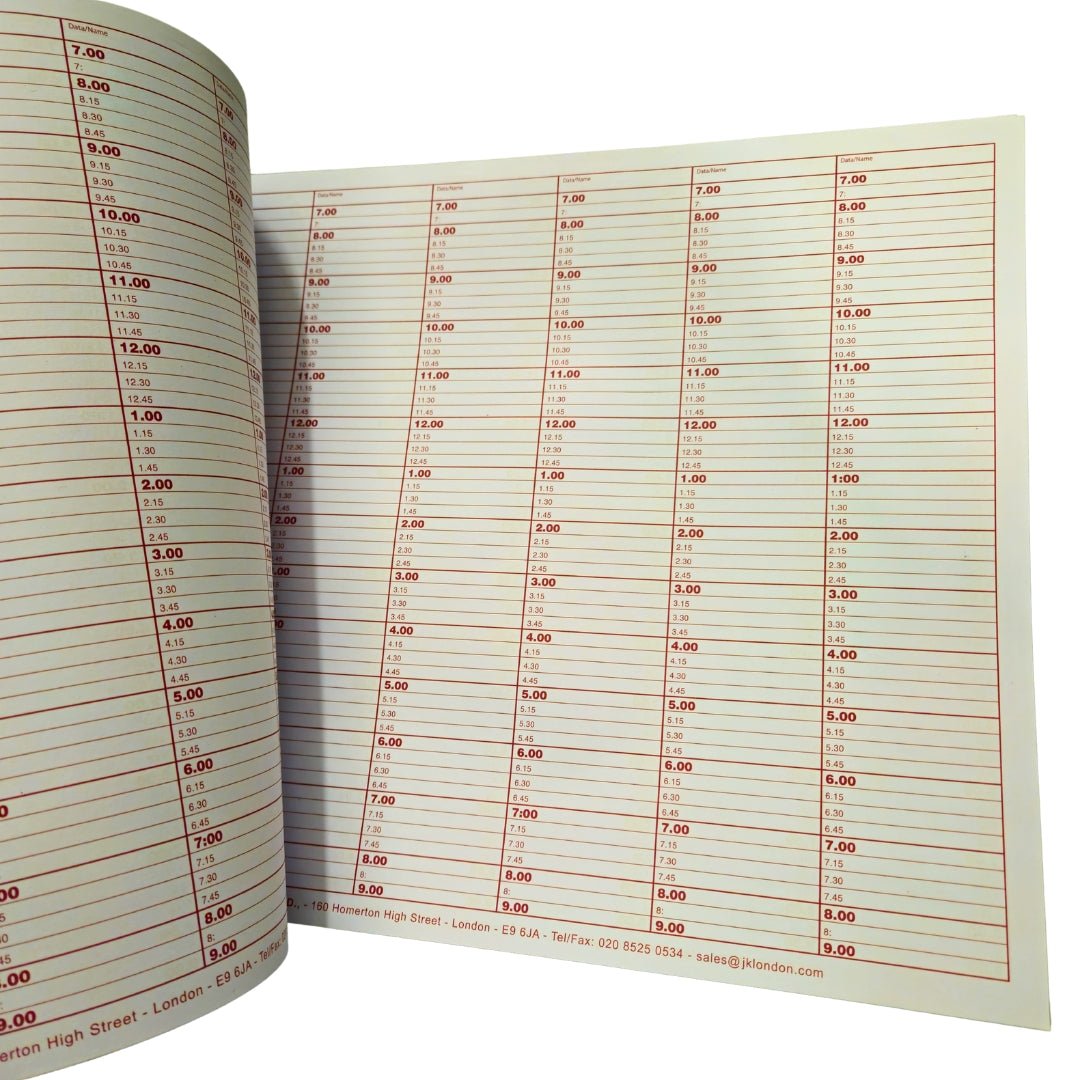 Data/Name
7.00
7:
8.00
8.15
8.30
8.45
9.00
9.15
9.30
9.45
10.00
10.15
10.30
10.45
11.00
11.15
11.30
11.45
12.00
12.15
12.30
12.45
1.00
1.15
1.30
1.45
2.00
2.15
2.30
2.45
3.00
3.15
3.30
3.45
4.00
4.15
4.30
4.45
5.00
5.15
5.30
5.45
6.00
6.15
6.30
6.45
7:00
7.15
7.30
7.45
8.00
8:
9.00
High Street - London - E9 6JA - Tel/Fax:
Data/Name
7.00
7:
8.00
8.15
8.30
8.45
9.00
9.15
9.30
9.45
10.00
10.15
10.30
10.45
11.00
11.15
11.30
11.45
12.00
12.15
12.30
12.45
1.00
1.15
1.30
1.45
2.00
2.15
Data/Name
7.00
7:
8.00
8.15
8.30
8.45
9.00
9.15
9.30
9.45
10.00
10.15
10.30
10.45
11.00
11.15
11.30
11.45
12.00
12.15
12.30
12.45
1.00
1.15
1.30
1.45
2.00
2.15
2.30
2.45
3.00
3.15
3.30
3.45
4.00
4.15
4.30
4.45
5.00
5.15
5.30
5.45
6.00
6.15
6.30
6.45
7.00
7.15
7.30
7.45
8.00
8:
9.00
Data/Name
7.00
7:
8.00
8.15
8.30
8.45
9.00
9.15
9.30
9.45
10.00
10.15
10.30
10.45
11.00
11.15
11.30
11.45
12.00
12.15
12.30
12.45
1.00
1.15
1.30
1.45
2.00
2.15
2.30
2.45
3.00
3.15
3.30
3.45
4.00
4.15
4.30
4.45
5.00
5.15
5.30
5.45
6.00
6.15
6.30
6.45
7:00
7.15
7.30
7.45
8.00
8:
9.00
Data/Name
7.00
7:
8.00
8.15
8.30
8.45
9.00
9.15
9.30
9.45
10.00
10.15
10.30
10.45
11.00
11.15
11.30
11.45
12.00
12.15
12.30
12.45
1.00
1.15
1.30
1.45
2.00
2.15
2.30
2.45
3.00
3.15
3.30
3.45
4.00
4.15
4.30
4.45
5.00
5.15
5.30
5.45
6.00
6.15
6.30
6.45
7.00
7.15
7.30
7.45
8.00
8:
9.00
Data/Name
7.00
7:
8.00
8.15
8.30
8.45
9.00
9.15
9.30
9.45
10.00
10.15
10.30
10.45
11.00
11.15
11.30
11.45
12.00
12.15
12.30
12.45
1:00
1.15
1.30
1.45
2.00
2.15
2.30
2.45
3.00
3.15
3.30
3.45
4.00
4.15
4.30
4.45
5.00
5.15
5.30
5.45
6.00
6.15
6.30
6.45
7.00
7.15
7.30
7.45
8.00
8:
9.00
- 160 Homerton High Street - London - E9 6JA - Tel/Fax: 020 8525 0534 - sales@jklondon.com